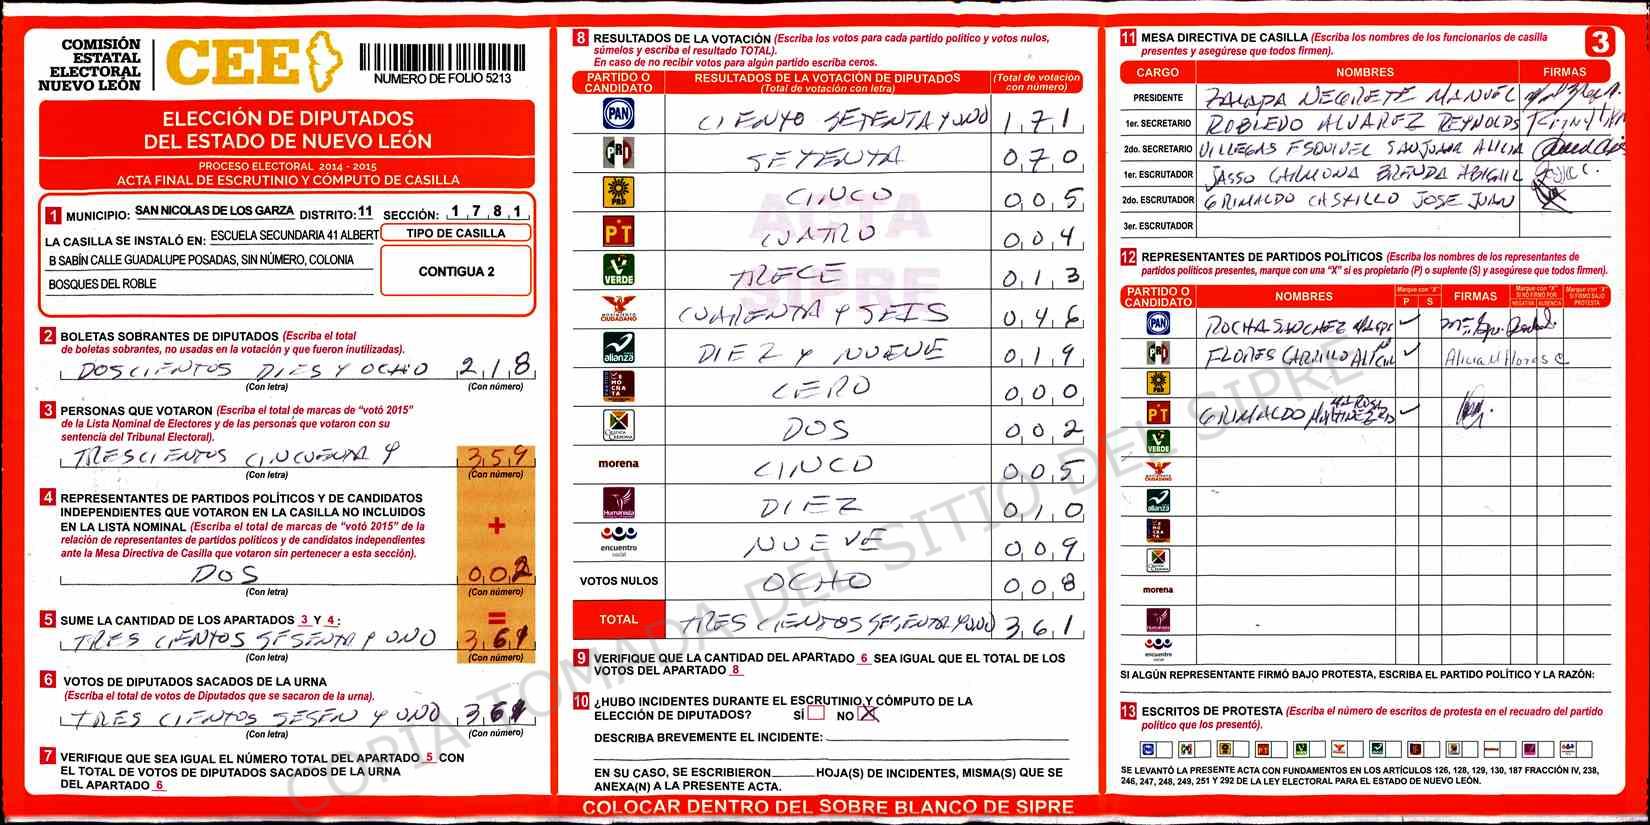 COMISIÓN
ESTATAL
ELECTORAL
NUEVO LEÓN
CEE
NUMERO DE FOLIO 5213
ELECCIÓN DE DIPUTADOS
DEL ESTADO DE NUEVO LEÓN
PROCESO ELECTORAL 2014 - 2015
ACTA FINAL DE ESCRUTINIO Y CÓMPUTO DE CASILLA
1 MUNICIPIO: SAN NICOLAS DE LOS GARZA DISTRITO: 11 SECCIÓN: 1 7 8 1
LA CASILLA SE INSTALÓ EN: ESCUELA SECUNDARIA 41 ALBERT
B SABÍN CALLE GUADALUPE POSADAS, SIN NÚMERO, COLONIA
BOSQUES DEL ROBLE
TIPO DE CASILLA
CONTIGUA 2
2 BOLETAS SOBRANTES DE DIPUTADOS (Escriba el total
de boletas sobrantes, no usadas en la votación y que fueron inutilizadas).
DOSCIENTOS DIES Y OCHO 2 1 8
(Con letra) (Con número)
3 PERSONAS QUE VOTARON (Escriba el total de marcas de "votó 2015"
de la Lista Nominal de Electores y de las personas que votaron con su
sentencia del Tribunal Electoral).
TRESCIENTOS CINCUENTA Y 3 5 9
(Con letra) (Con número)
4 REPRESENTANTES DE PARTIDOS POLÍTICOS Y DE CANDIDATOS
INDEPENDIENTES QUE VOTARON EN LA CASILLA NO INCLUIDOS
EN LA LISTA NOMINAL (Escriba el total de marcas de "votó 2015" de la
relación de representantes de partidos políticos y de candidatos independientes
ante la Mesa Directiva de Casilla que votaron sin pertenecer a esta sección).
+
DOS 0 0 2
(Con letra) (Con número)
=
5 SUME LA CANTIDAD DE LOS APARTADOS 3 Y 4:
TRES CIENTOS SESENTA Y UNO 3 6 1
(Con letra) (Con número)
6 VOTOS DE DIPUTADOS SACADOS DE LA URNA
(Escriba el total de votos de Diputados que se sacaron de la urna).
TRES CIENTOS SESEN Y UNO 3 6 1
(Con letra) (Con número)
7 VERIFIQUE QUE SEA IGUAL EL NÚMERO TOTAL DEL APARTADO 5 CON
EL TOTAL DE VOTOS DE DIPUTADOS SACADOS DE LA URNA
DEL APARTADO 6
8 RESULTADOS DE LA VOTACIÓN (Escriba los votos para cada partido político y votos nulos,
súmelos y escriba el resultado TOTAL).
En caso de no recibir votos para algún partido escriba ceros.
PARTIDO O CANDIDATO RESULTADOS DE LA VOTACIÓN DE DIPUTADOS (Total de votación con letra) (Total de votación con número)
PAN CIENTO SETENTA Y UNO 1 7 1
PRI SETENTA 0 7 0
PRD CINCO 0 0 5
PT CUATRO 0 0 4
VERDE TRECE 0 1 3
MOVIMIENTO CIUDADANO CUARENTA Y SEIS 0 4 6
alianza DIEZ Y NUEVE 0 1 9
CERO 0 0 0
CRUZADA CIUDADANA DOS 0 0 2
morena CINCO 0 0 5
Humanista DIEZ 0 1 0
encuentro social NUEVE 0 0 9
VOTOS NULOS OCHO 0 0 8
TOTAL TRES CIENTOS SESENTA Y UNO 3 6 1
ACTA
SIPRE
9 VERIFIQUE QUE LA CANTIDAD DEL APARTADO 6 SEA IGUAL QUE EL TOTAL DE LOS
VOTOS DEL APARTADO 8
10 ¿HUBO INCIDENTES DURANTE EL ESCRUTINIO Y CÓMPUTO DE LA
ELECCIÓN DE DIPUTADOS? SÍ NO X
DESCRIBA BREVEMENTE EL INCIDENTE:
EN SU CASO, SE ESCRIBIERON HOJA(S) DE INCIDENTES, MISMA(S) QUE SE
ANEXA(N) A LA PRESENTE ACTA.
COLOCAR DENTRO DEL SOBRE BLANCO DE SIPRE
11 MESA DIRECTIVA DE CASILLA (Escriba los nombres de los funcionarios de casilla
presentes y asegúrese que todos firmen).
3
CARGO NOMBRES FIRMAS
PRESIDENTE ZALAPA NEGRETE MANUEL
1er. SECRETARIO ROBLEDO ALVAREZ REYNOLDS
2do. SECRETARIO VILLEGAS ESQUIVEL SANJUANA ALICIA
1er. ESCRUTADOR JASSO CARMONA BRENDA ABIGAIL
2do. ESCRUTADOR GRIMALDO CASTILLO JOSE JUAN
3er. ESCRUTADOR
12 REPRESENTANTES DE PARTIDOS POLÍTICOS (Escriba los nombres de los representantes de
partidos políticos presentes, marque con una "X" si es propietario (P) o suplente (S) y asegúrese que todos firmen).
PARTIDO O CANDIDATO NOMBRES Marque con "X" P S FIRMAS Marque con "X" SI NO FIRMÓ POR NEGATIVA AUSENCIA Marque con "X" SI FIRMÓ BAJO PROTESTA
PAN ROCHA SANCHEZ
PRI FLORES CARRILLO ALICIA Alicia M Flores C
PRD
PT GRIMALDO MARTINEZ
VERDE
MOVIMIENTO CIUDADANO
alianza
morena
Humanista
encuentro social
SI ALGÚN REPRESENTANTE FIRMÓ BAJO PROTESTA, ESCRIBA EL PARTIDO POLÍTICO Y LA RAZÓN:
13 ESCRITOS DE PROTESTA (Escriba el número de escritos de protesta en el recuadro del partido
político que los presentó).
SE LEVANTÓ LA PRESENTE ACTA CON FUNDAMENTOS EN LOS ARTÍCULOS 126, 128, 129, 130, 187 FRACCIÓN IV, 238,
246, 247, 248, 249, 251 Y 292 DE LA LEY ELECTORAL PARA EL ESTADO DE NUEVO LEÓN.
COPIA TOMADA DEL SITIO DEL SIPRE